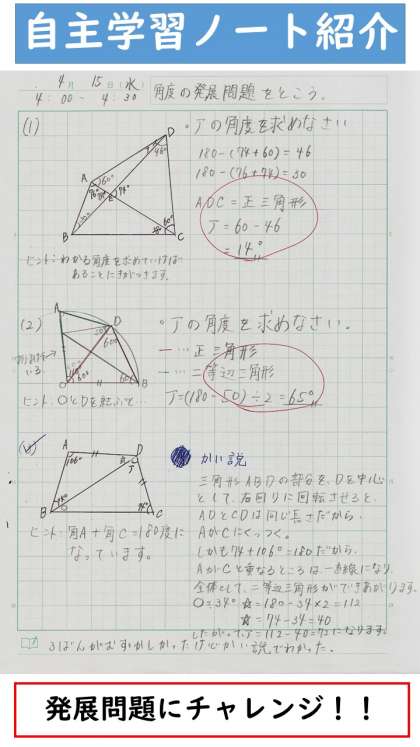 自主学習ノート紹介
4月 15日(水)
4:00 - 4:30
角度の発展問題をとこう。
(1)
アの角度を求めなさい
180-(74+60)=46
180-(76+74)=30
ADC=正三角形
ア=60-46
=14°
A
B
C
D
E
60°
74°
46°
60°
ヒント:わかる角度を求めていけば
あることにきがつきます。
(2)
・アの角度を求めなさい。
ー…正三角形
ー…二等辺三角形
ア=(180-50)÷2=65°
A
D
O
B
ヒント:OとDを結ぶと…
かい説
三角形ABDの部分を、Dを中心
として、右回りに回転させると、
ADとCDは同じ長さだから、
AがCにくっつく。
しかも74+106°=180だから、
AがCと重なるところは一直線になり、
全体として、二等辺三角形ができあがります。
○=34° ☆=180-34×2=112
☆=74-34=40
したがって、ア=112-40=72になります。
A
D
B
C
106°
ア
ヒント:角A+角C=180度に
なっています。
3ばんがむずかしかったけどかい説でわかった。
発展問題にチャレンジ!!